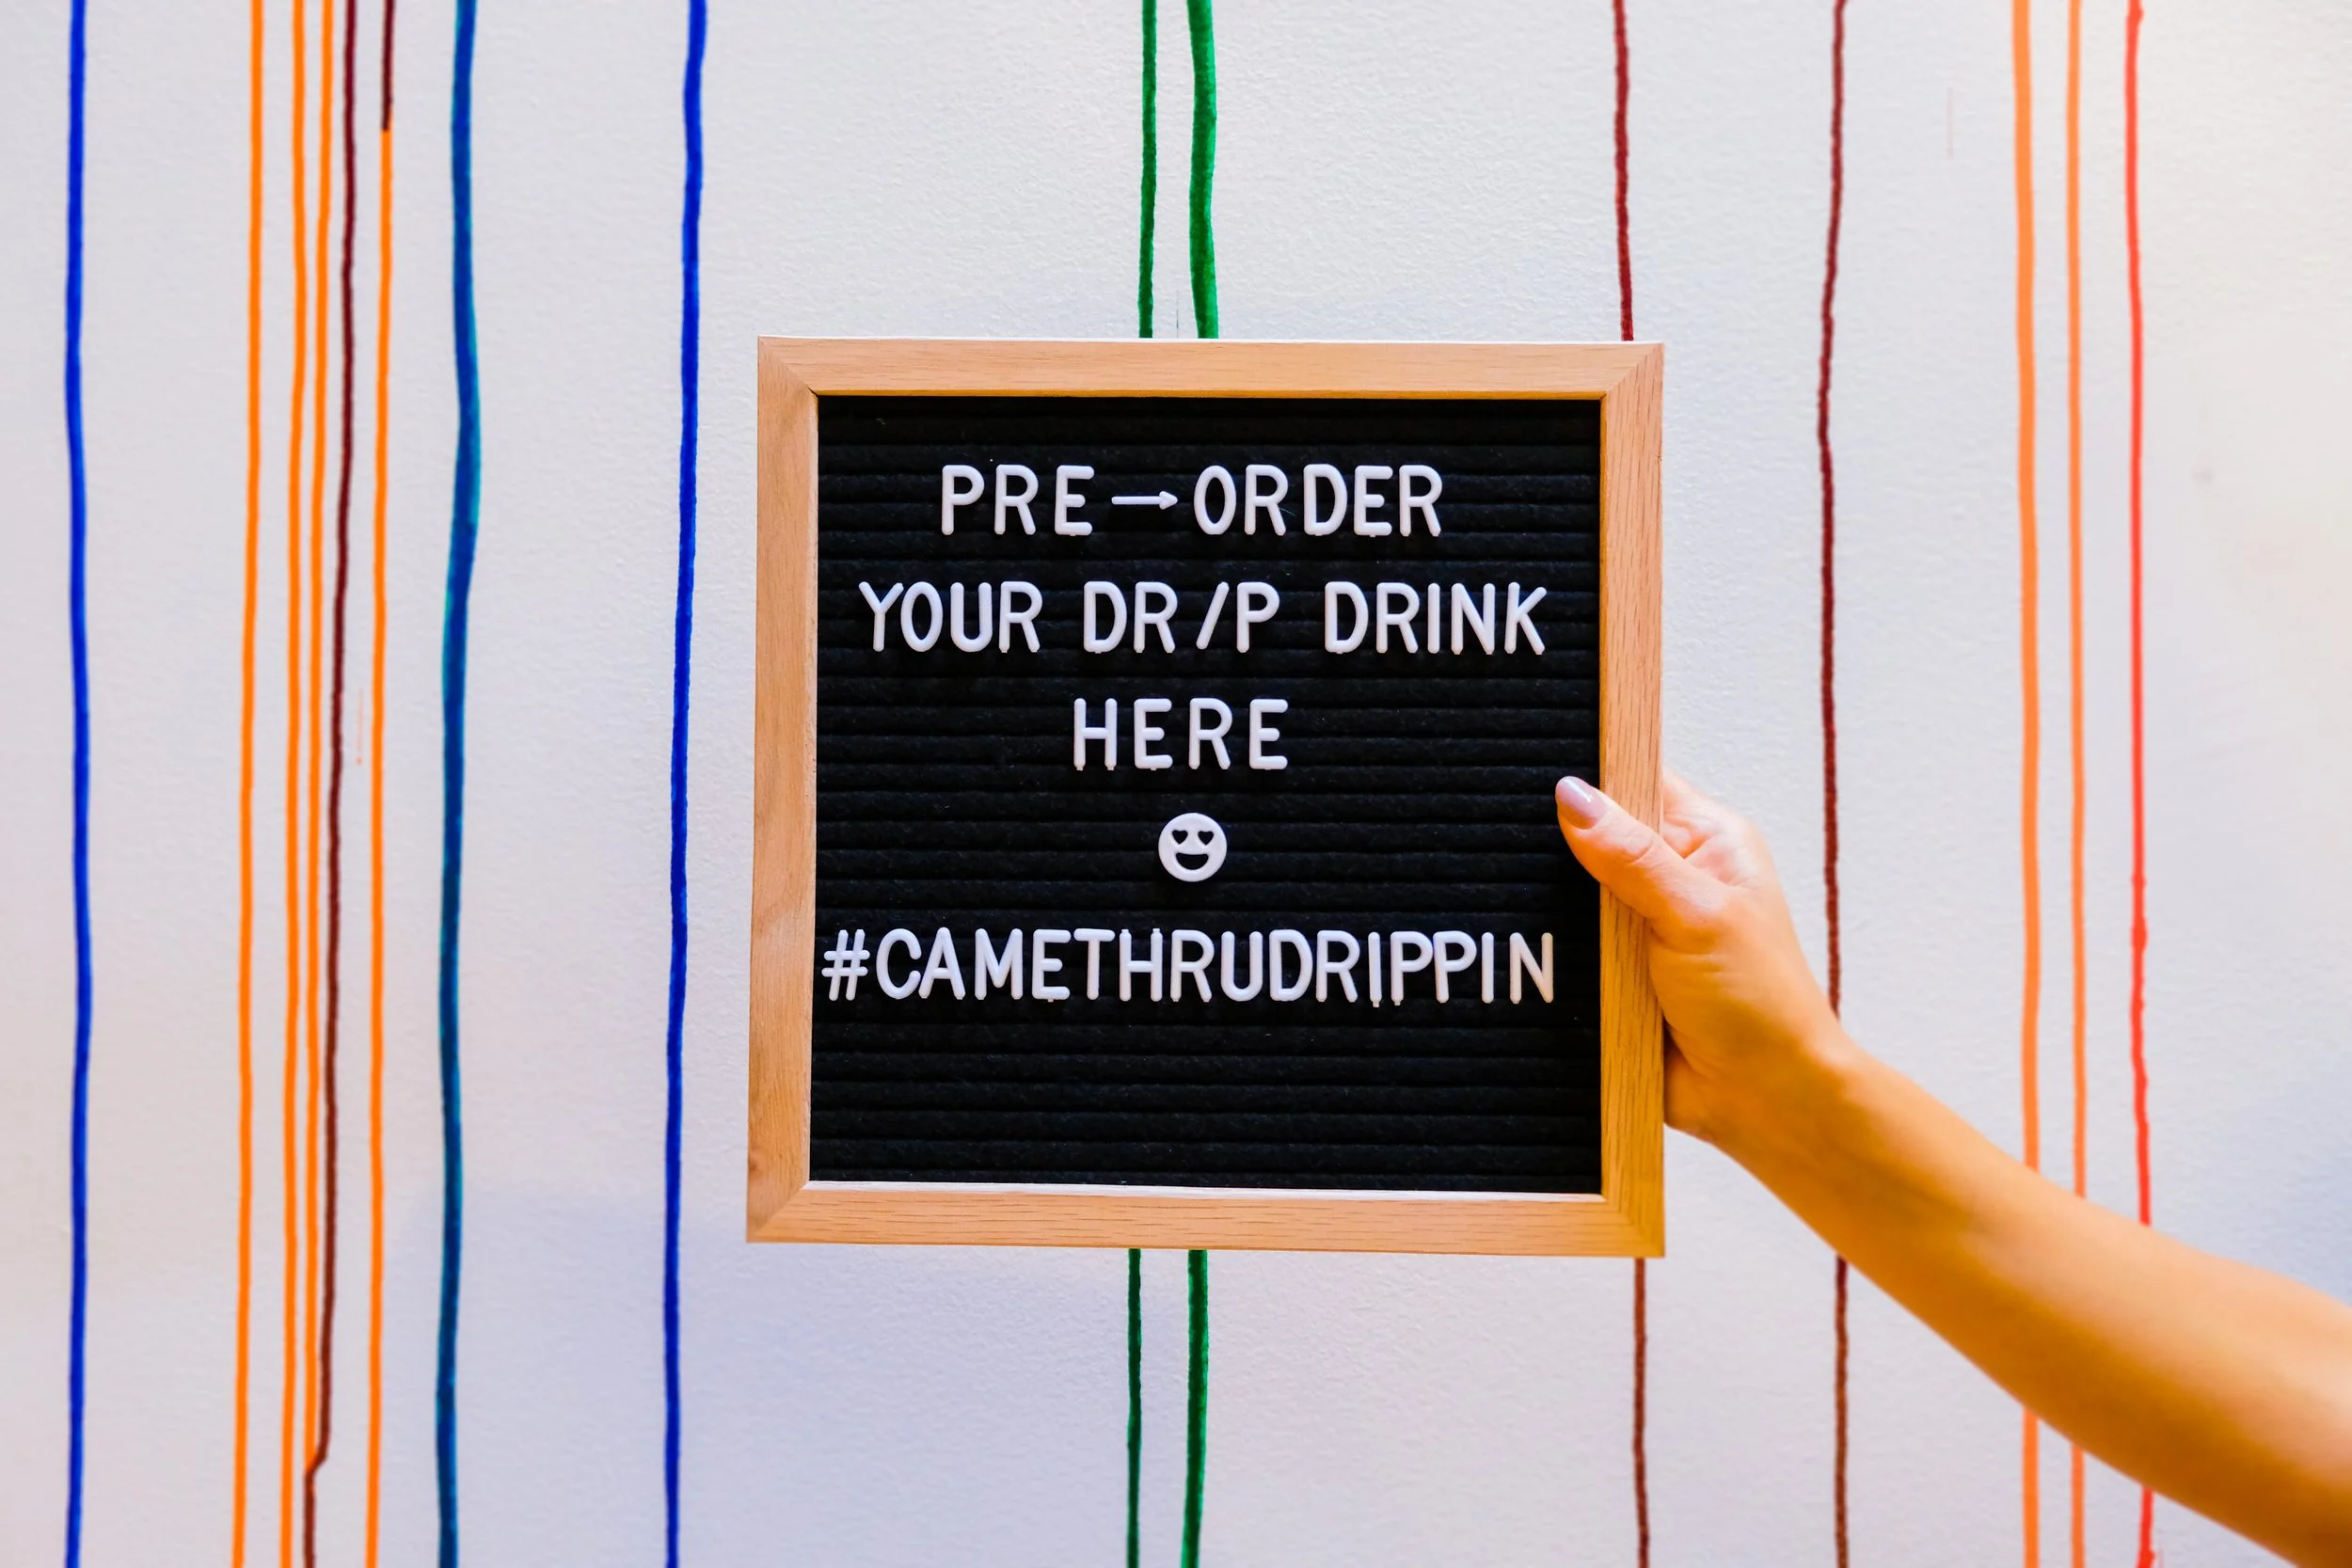 PRE→ORDER
YOUR DR/P DRINK
HERE
😍
#CAMETHRUDRIPPIN